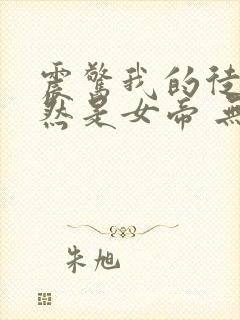 震驚我的徒
然是女帝 無
朱旭